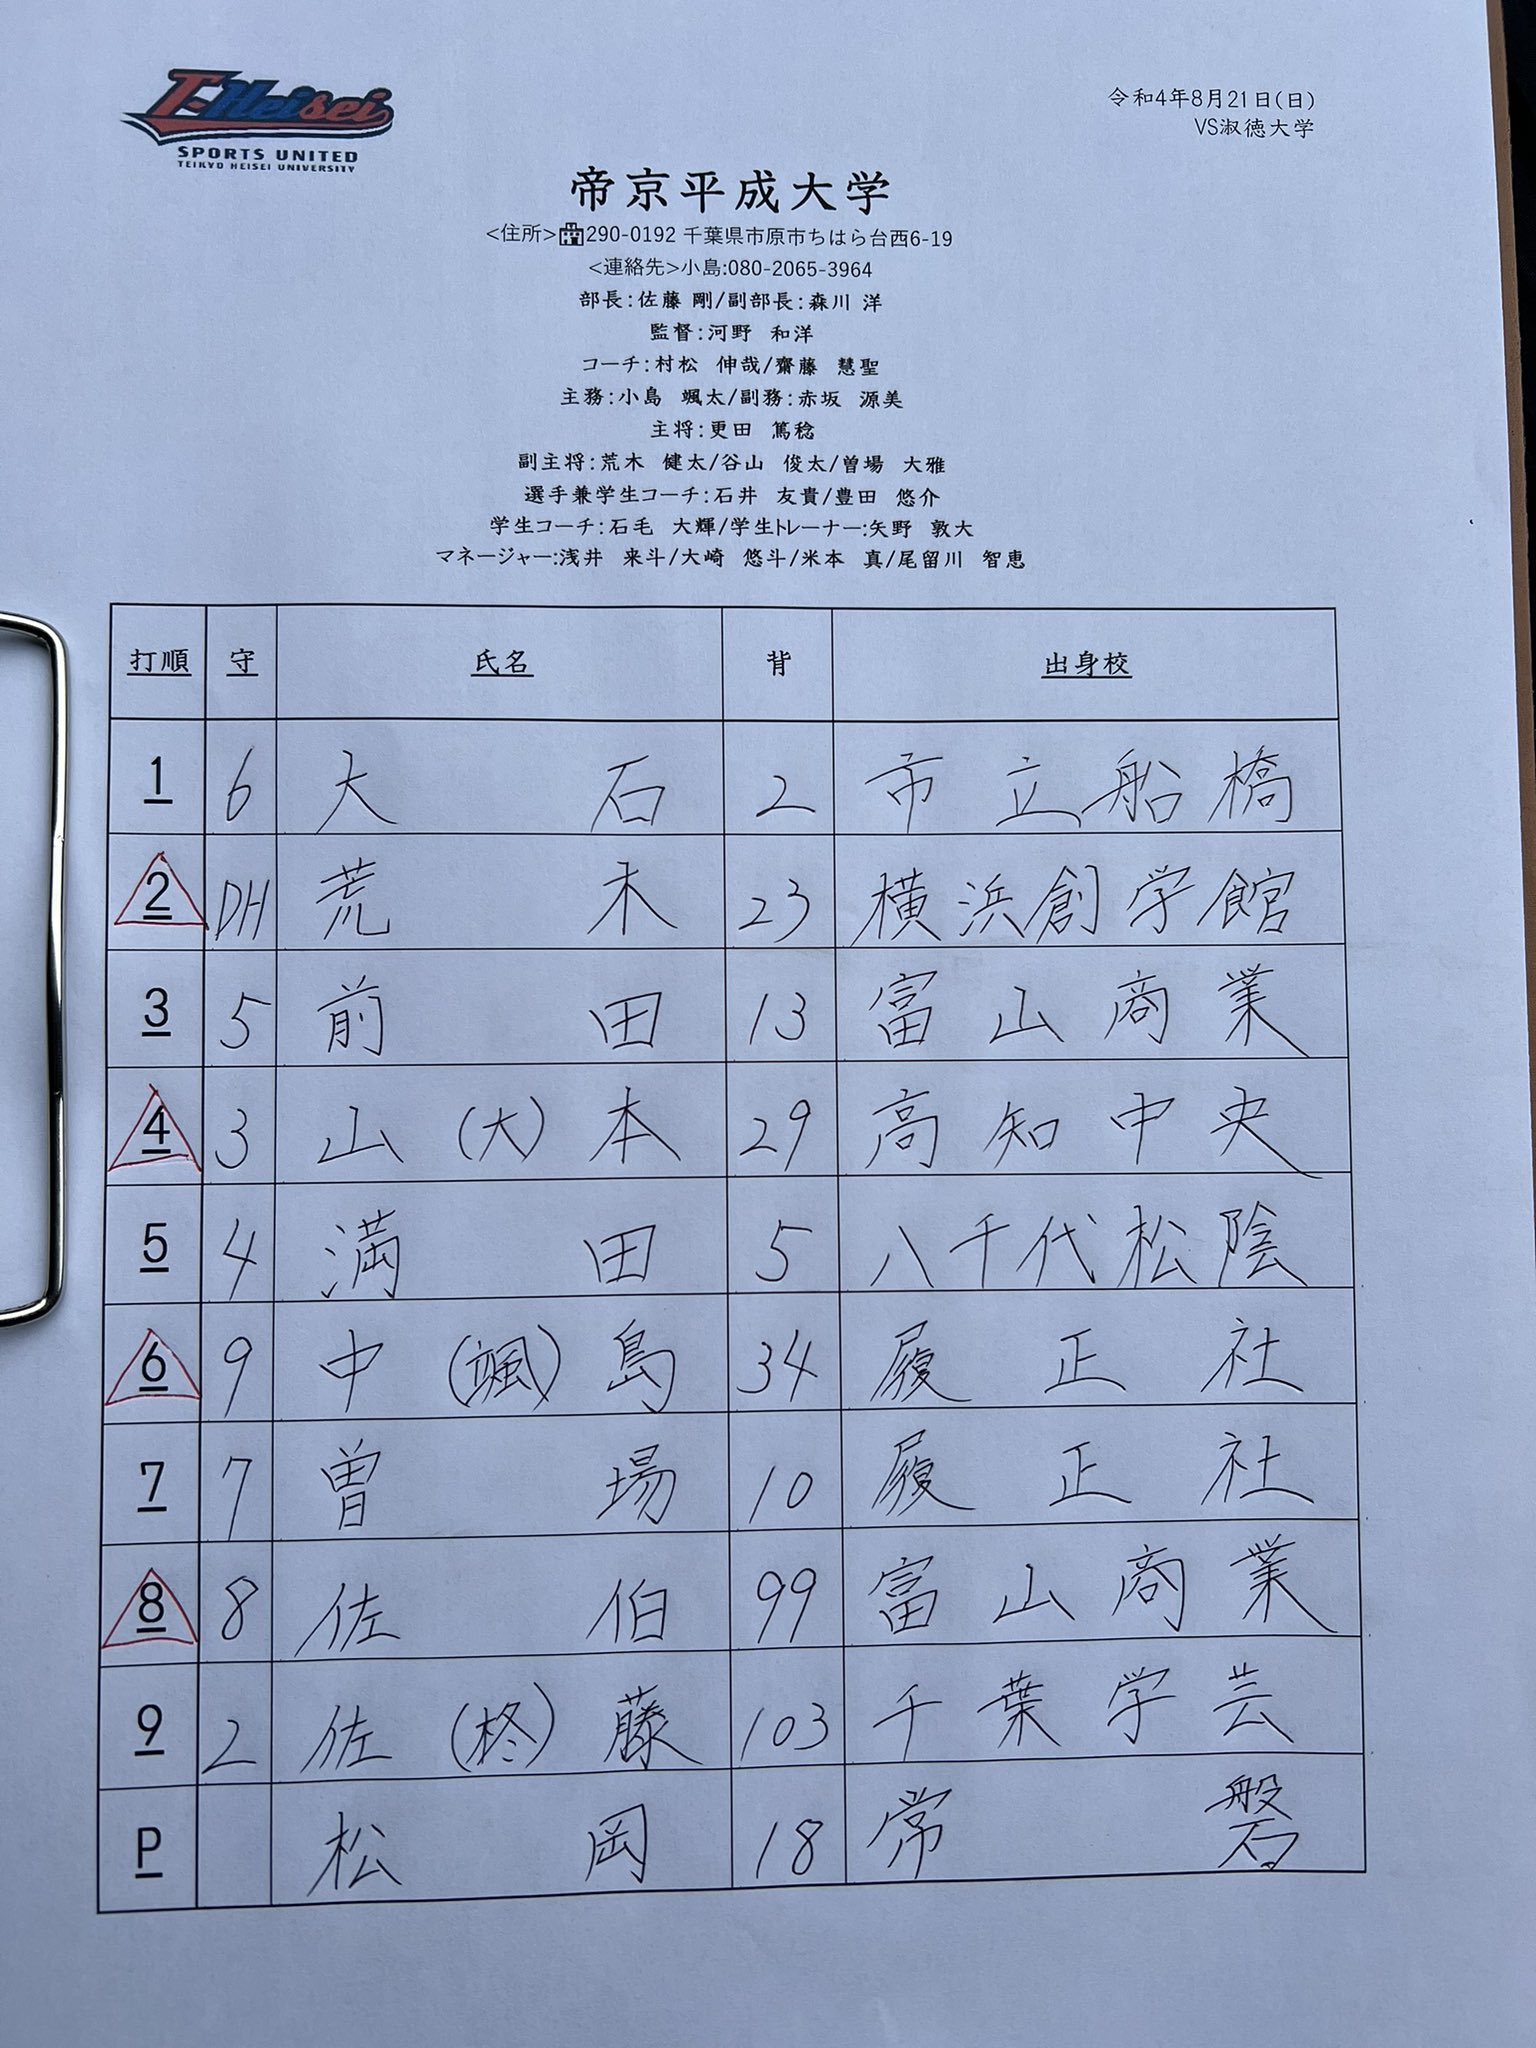 T-Heisei
SPORTS UNITED
TEIKYO HEISEI UNIVERSITY
令和4年8月21日(日)
VS淑徳大学
帝京平成大学
<住所>290-0192 千葉県市原市ちはら台西6-19
<連絡先>小島:080-2065-3964
部長:佐藤 剛/副部長:森川 洋
監督:河野 和洋
コーチ:村松 伸哉/齋藤 慧聖
主務:小島 颯太/副務:赤坂 源美
主将:更田 篤稔
副主将:荒木 健太/谷山 俊太/曽場 大雅
選手兼学生コーチ:石井 友貴/豊田 悠介
学生コーチ:石毛 大輝/学生トレーナー:矢野 敦大
マネージャー:浅井 来斗/大崎 悠斗/米本 真/尾留川 智恵
打順 守 氏名 背 出身校
1 6 大石 2 市立船橋
2 DH 荒木 23 横浜創学館
3 5 前田 13 富山商業
4 3 山(大)本 29 高知中央
5 4 満田 5 八千代松陰
6 9 中(颯)島 34 履正社
7 7 曽場 10 履正社
8 8 佐伯 99 富山商業
9 2 佐(柊)藤 103 千葉学芸
P 松岡 18 常磐